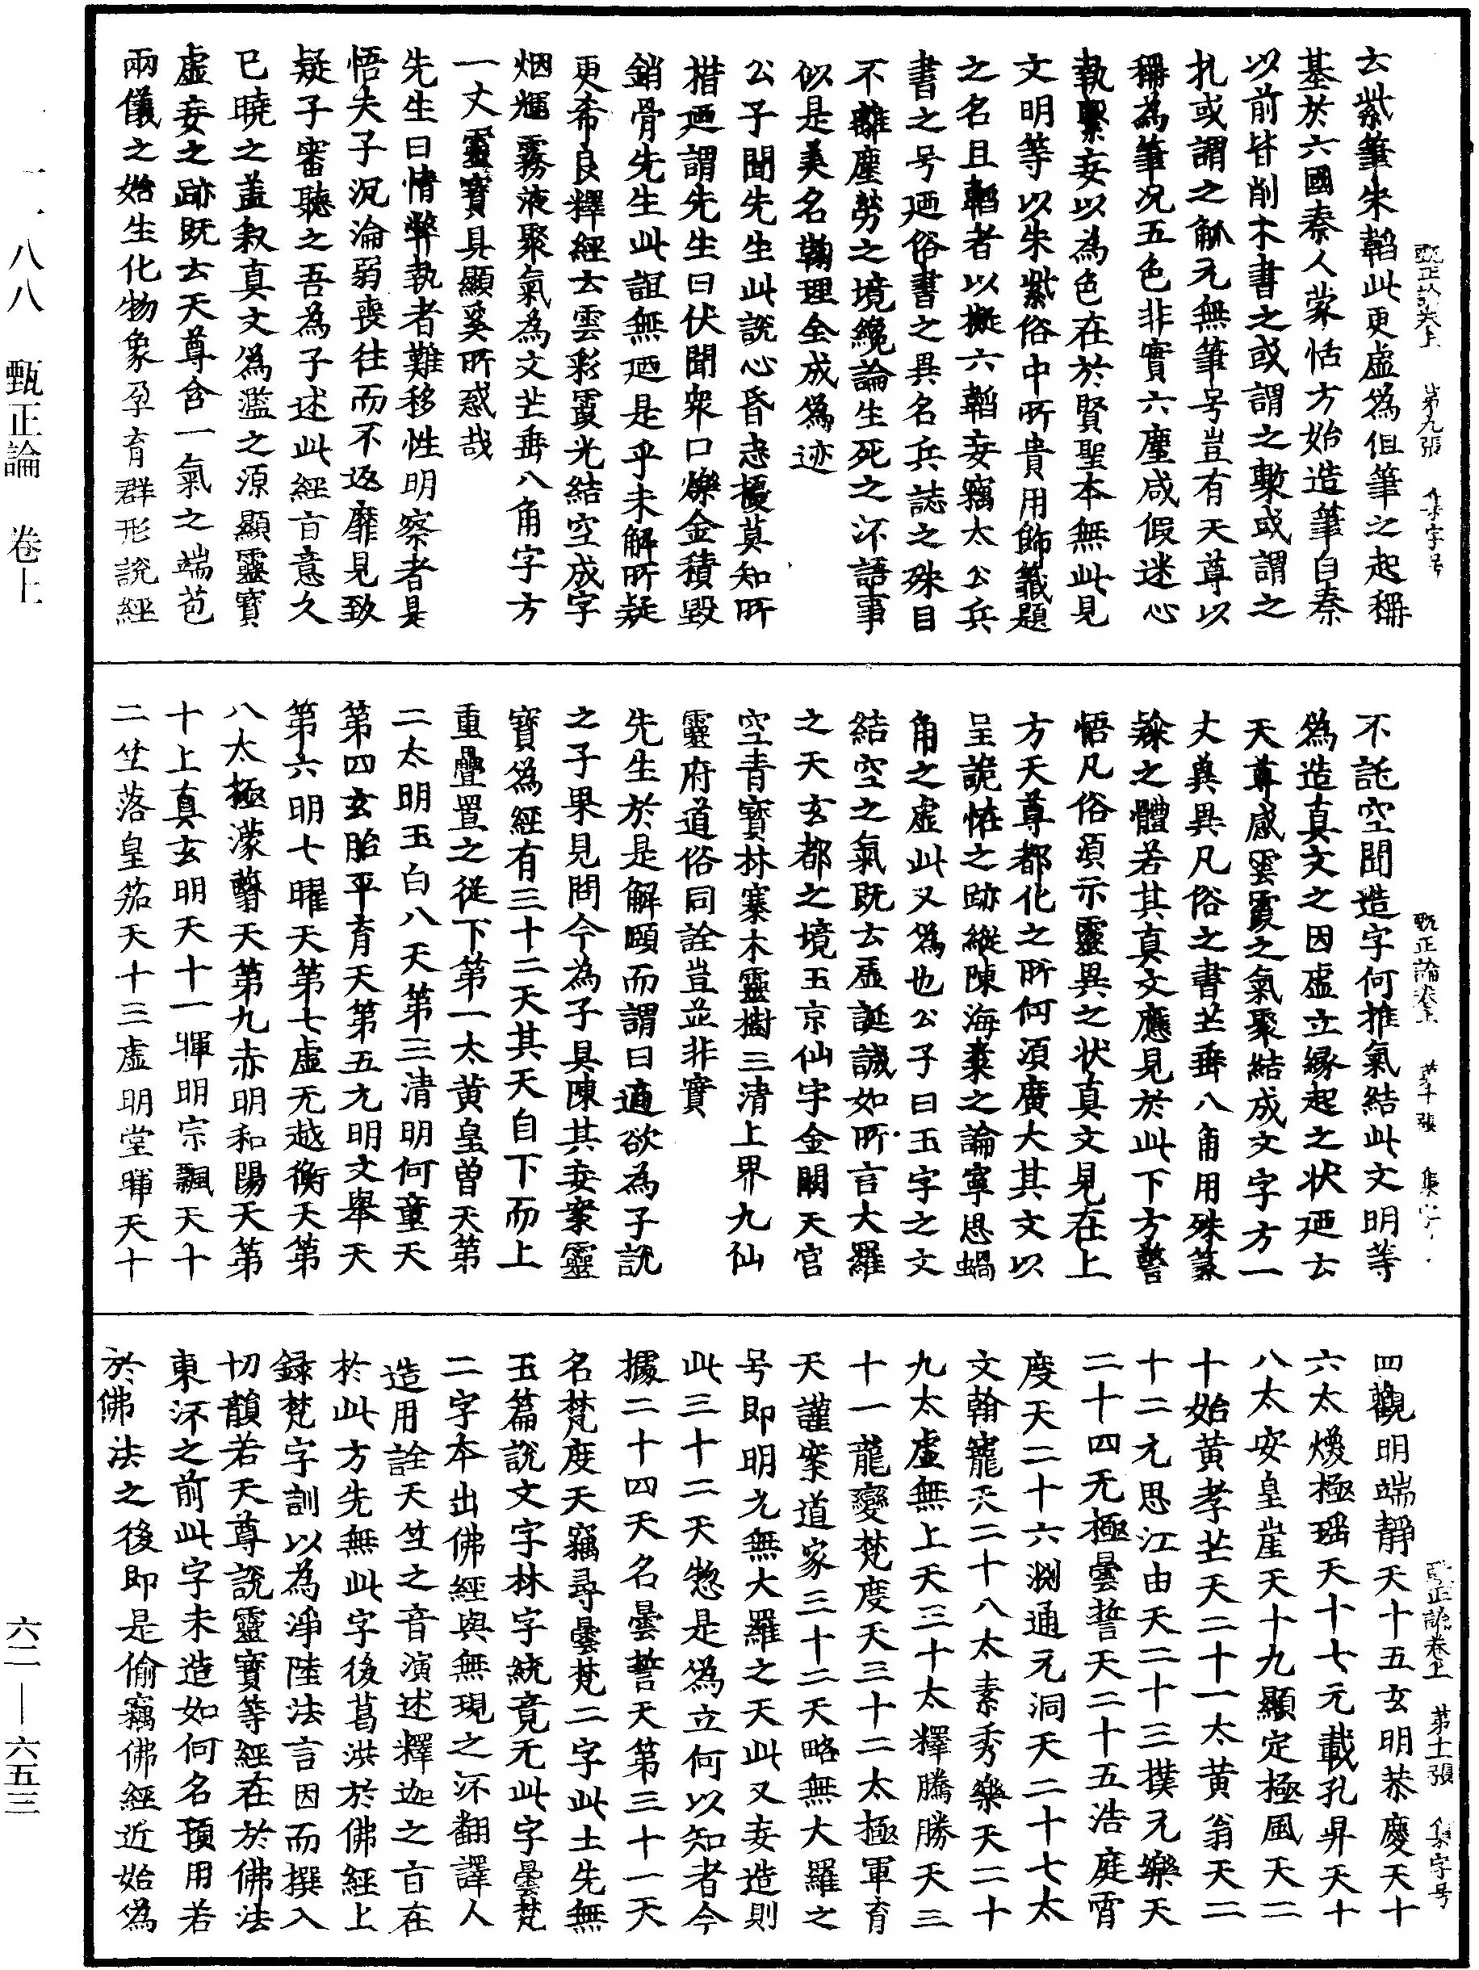 一一八八　甄正論　卷上
六二—六五三
甄正論卷上　第九張　集字号
云紫筆朱韜此更虛為但筆之起稱
基於六國秦人蒙恬方始造筆自秦
以前皆削木書之或謂之槧或謂之
札或謂之觚元無筆号豈有天尊以
稱為筆况五色非實六塵咸假迷心
執繫妄以為色在於賢聖本無此見
文明等以朱紫俗中所貴用飾籤題
之名且韜者以擬六韜妄竊太公兵
書之号迺俗書之異名兵誌之殊目
不離塵勞之境纔論生死之沠語事
似是美名鞫理全成為迹
公子聞先生此說心昏志擾莫知所
措迺謂先生曰伏聞衆口爍金積毀
銷骨先生此誼無迺是乎未解所疑
更希良釋經云雲彩霞光結空成字
烟輝霧液聚氣為文芒垂八角字方
一丈靈寶具顯奚所惑哉
先生曰情弊執者難移性明察者易
悟夫子沉淪弱喪往而不返靡見致
疑子審聽之吾為子述此經旨意久
已曉之盖叙真文為濫之源顯靈寶
虛妄之跡既去天尊含一氣之端苞
兩儀之始生化物象孕育群形說經
甄正論卷上　第十張　集字号
不託空聞造字何推氣結此文明等
為造真文之因虛立緣起之状迺云
天尊感雲霞之氣聚結成文字方一
丈奠異凡俗之書芒垂八角用殊篆
隸之體若其真文應見於此下方警
悟凡俗須示靈異之状真文見在上
方天尊都化之所何須廣大其文以
呈詭恠之跡縱陳海棗之論寧思蝸
角之虛此又為也公子曰玉字之文
結空之氣既去虛誕誠如所言大羅
之天玄都之境玉京仙宇金闕天宮
空青寶林騫木靈樹三清上界九仙
靈府道俗同詮豈並非實
先生於是解頤而謂曰適欲為子說
之子果見問今為子具陳其妄案靈
寶為經有三十二天其天自下而上
重疊置之從下第一太黃皇曾天第
二太明玉白八天第三清明何童天
第四玄胎平育天第五元明文舉天
第六明七曜天第七虛无越衡天第
八太極濛翳天第九赤明和陽天第
十上真玄明天十一暉明宗飄天十
二竺落皇笳天十三虛明堂暉天十
甄正論卷上　第十一張　集字号
四觀明端靜天十五玄明恭慶天十
六太煥極瑶天十七元載孔昇天十
八太安皇崖天十九顯定極風天二
十始黃孝芒天二十一太黃翁天二
十二元思江由天二十三揲元樂天
二十四无極曇誓天二十五浩庭霄
度天二十六渊通元洞天二十七太
文翰寵天二十八太素秀樂天二十
九太虛無上天三十太釋騰勝天三
十一龍變梵度天三十二太極軍育
天謹案道家三十二天略無大羅之
号即明尤無大羅之天此又妄造則
此三十二天惣是為立何以知者今
據二十四天名曇誓天第三十一天
名梵度天竊尋曇梵二字此土先無
玉篇說文字林字統竟无此字曇梵
二字本出佛經與無現之沠翻譯人
造用詮天竺之音演述釋迦之旨在
於此方先無此字後葛洪於佛經上
録梵字訓以為淨陸法言因而撰入
切韻若天尊說靈寶等經在於佛法
東沠之前此字未造如何名預用若
於佛法之後即是偷竊佛經近始為